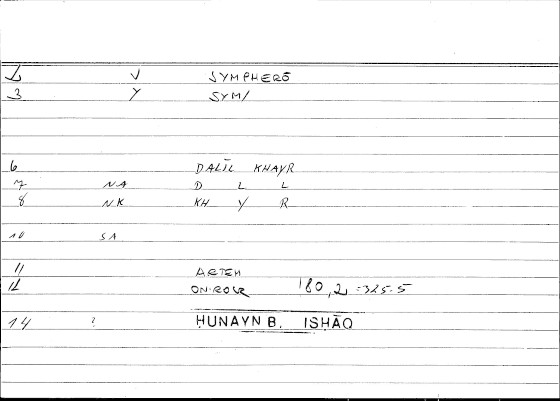 2 V SYMPHERŌ
3 Y SYM/
6 DALĪL KHAYR
7 NA D L L
8 NK KH Y R
10 SA
11 ARTEM
12 180,2 = 325.5
14 ? ḤUNAYN B. ISḤĀQ